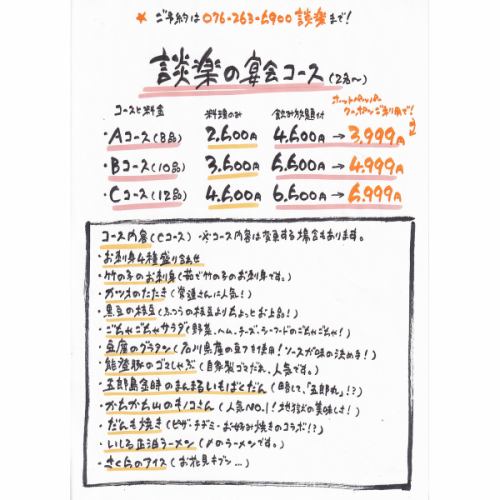 ★ ご予約は 076-263-5900 談楽まで!
談楽の宴会コース(2名〜)
コースと料金 料理のみ 飲み放題付 ホットペッパークーポンご利用で!
・Aコース(8品) 2.500円 4.500円 → 3.999円
・Bコース(10品) 3.500円 5.500円 → 4.999円
・Cコース(12品) 4.500円 6.500円 → 5.999円
コース内容(Cコース) ・※コース内容は変更する場合もあります。
・お刺身4種盛り合わせ
・竹の子のお刺身(茹で竹の子のお刺身です。)
・カツオのたたき(常連さんに人気!)
・黒豆の枝豆(ふつうの枝豆よりちょっとお上品!)
・ごちゃごちゃサラダ(野菜、ハム、チーズ、シーフードのごちゃごちゃ!)
・豆腐のグラタン(石川県産の豆フを使用!ソースが味の決め手!)
・能登豚のゴマしゃぶ(自家製ゴマだれ、人気です。)
・五郎島金時のまんまるいもばとだん(略して、"五郎丸"!?)
・かちかち山のキノコさん(人気NO.1!地獄の美味しさ!)
・だんも焼き(ピザ・チヂミ・お好み焼きのコラボ!?)
・いしる正油ラーメン(〆のラーメンです。)
・さくらのアイス(お花見キブン...)